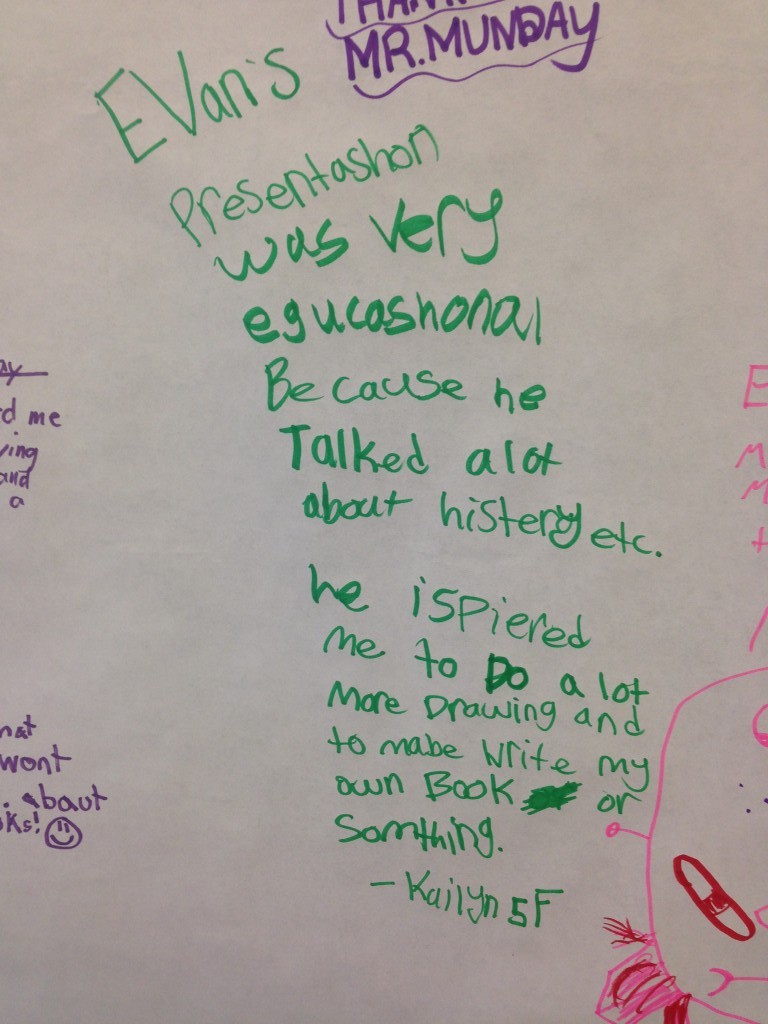 THANK
MR. MUNDAY
EVan's
Presentashon
was very
egucashonal
Because he
Talked a lot
about histery etc.
he ispiered
me to Do a lot
more Drawing and
to mabe write my
own Book or
Somthing.
- Kailyn 5F
ay
d me
ving
and
a
nat
wont
. about
ks!
E
M
M
t